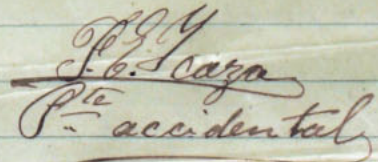 P. E. Ycaza
Pte accidental